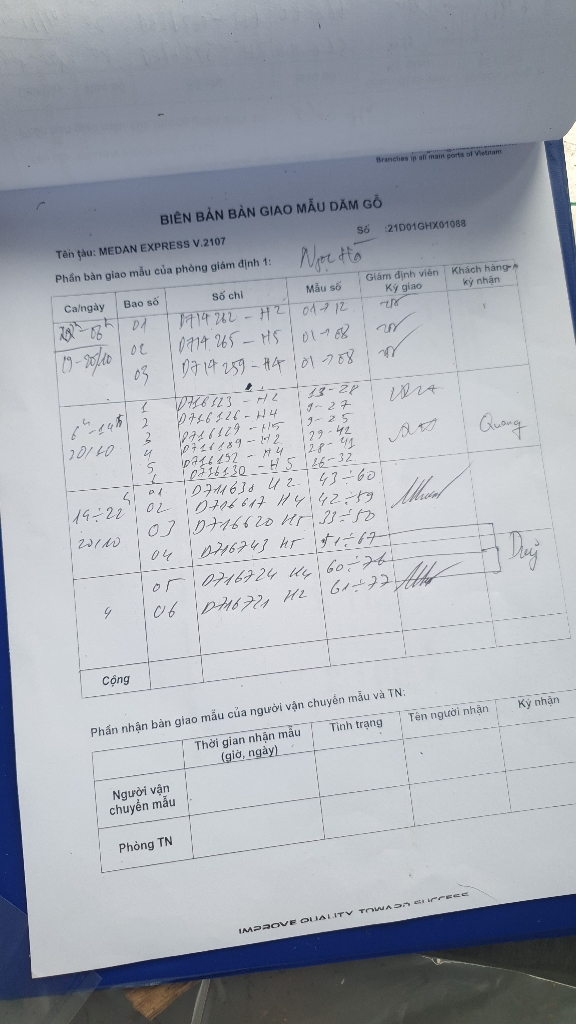 Branches in all main ports of Vietnam
BIÊN BẢN BÀN GIAO MẪU DĂM GỖ
Tên tàu: MEDAN EXPRESS V.2107 Số :21D01GHX01088
Phần bàn giao mẫu của phòng giám định 1: Ngọc Hà
Ca/ngày Bao số Số chì Mẫu số Giám định viên Ký giao Khách hàng ký nhận
22h-06h 01 D714262-H2 01→12
19-20/10 02 D714265-H5 01→08
03 D714259-H4 01→08
1 D716123-H2 13-28
6h-14h 2 D716126-H4 9-27
20/10 3 D716129-H5 9-25
4 D716189-H2 29-42 Quang
5 D716192-H4 28-41
6 D716130-H5 26-32
01 D711630 H2 43÷60
14÷22h 02 D716617 H4 42÷59
20/10 03 D716620 H5 33÷50
04 D716743 H5 51÷67
05 D716724 H4 60÷76 Duy
4 06 D716721 H2 61÷77
Cộng
Phần nhận bàn giao mẫu của người vận chuyển mẫu và TN:
Thời gian nhận mẫu (giờ, ngày) Tình trạng Tên người nhận Ký nhận
Người vận chuyển mẫu
Phòng TN
IMPROVE QUALITY TOWARD SUCCESS